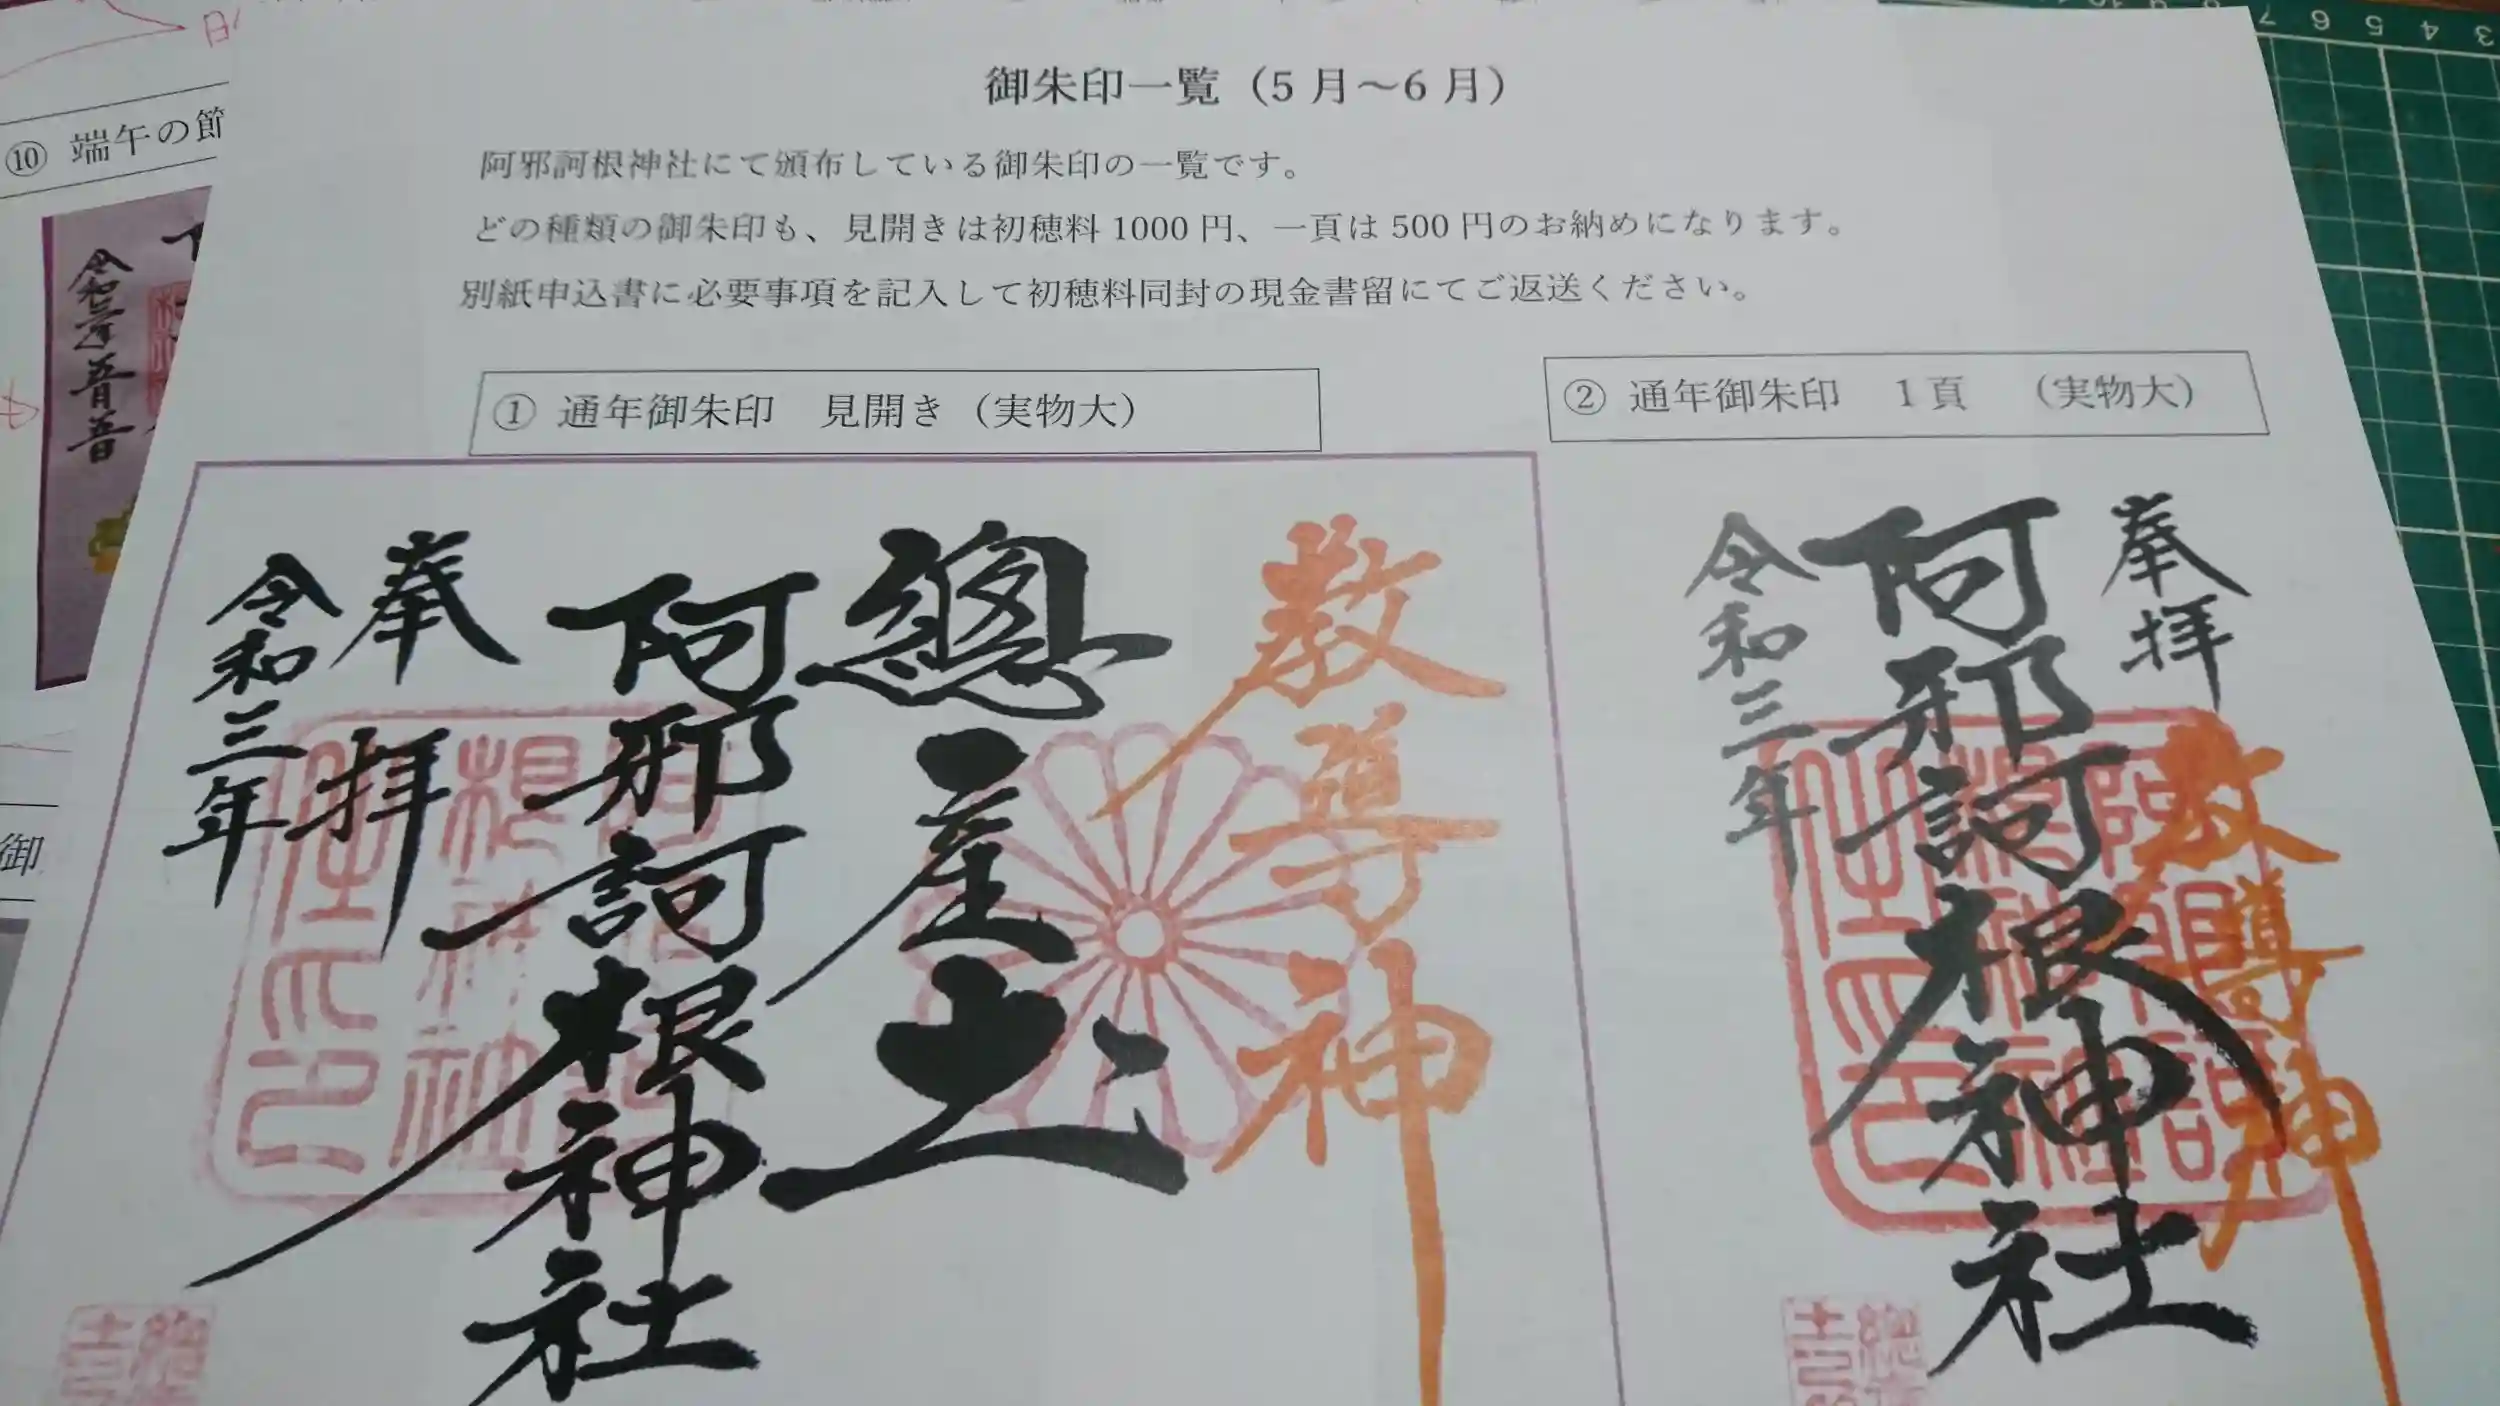 御朱印一覧（5月～6月）
阿邪訶根神社にて頒布している御朱印の一覧です。
どの種類の御朱印も、見開きは初穂料1000円、一頁は500円のお納めになります。
別紙申込書に必要事項を記入して初穂料同封の現金書留にてご返送ください。
① 通年御朱印　見開き（実物大）
教導神
總産土
阿邪訶根神社
奉拝
令和三年
② 通年御朱印　1頁　（実物大）
奉拝
教導神
阿邪訶根神社
令和三年
⑩ 端午の節
御
3 4 5 6 7 8 9 10